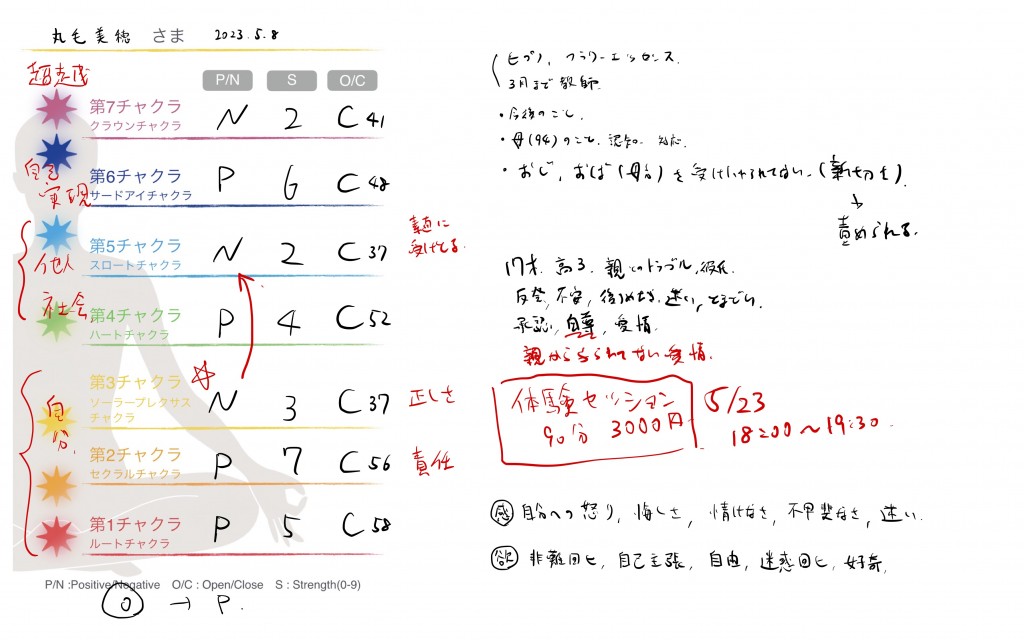 丸毛美穂 さま 2023.5.8
超意識
P/N S O/C
第7チャクラ
クラウンチャクラ
N 2 C 41
自己実現
第6チャクラ
サードアイチャクラ
P 6 C 48
第5チャクラ
スロートチャクラ
N 2 C 37
素直に
受けとる.
他人
社会
第4チャクラ
ハートチャクラ
P 4 C 52
第3チャクラ
ソーラープレクサス
チャクラ
N 3 C 37 正しさ
自分
第2チャクラ
セクラルチャクラ
P 7 C 56 責任
第1チャクラ
ルートチャクラ
P 5 C 58
P/N :Positive/Negative O/C : Open/Close S : Strength(0-9)
O → P.
ヒプノ, フラワーエッセンス.
3月まで教師
・今後のこと.
・母(94)のこと. 認知. 対応.
・おじ, おば(母方)を受け入れられてない.
↓
責められる.
17才. 高3. 親とのトラブル, 彼氏.
反発, 不安, 後ろめたさ, 迷い,
承認, 自尊, 愛情.
親から得られてない愛情.
体験セッション
90分 3000円
5/23
18:00〜19:30.
感 自分への怒り, 悔しさ, 情けなさ, 不甲斐なさ, 迷い.
欲 非難回ヒ, 自己主張, 自由, 迷惑回ヒ, 好奇,